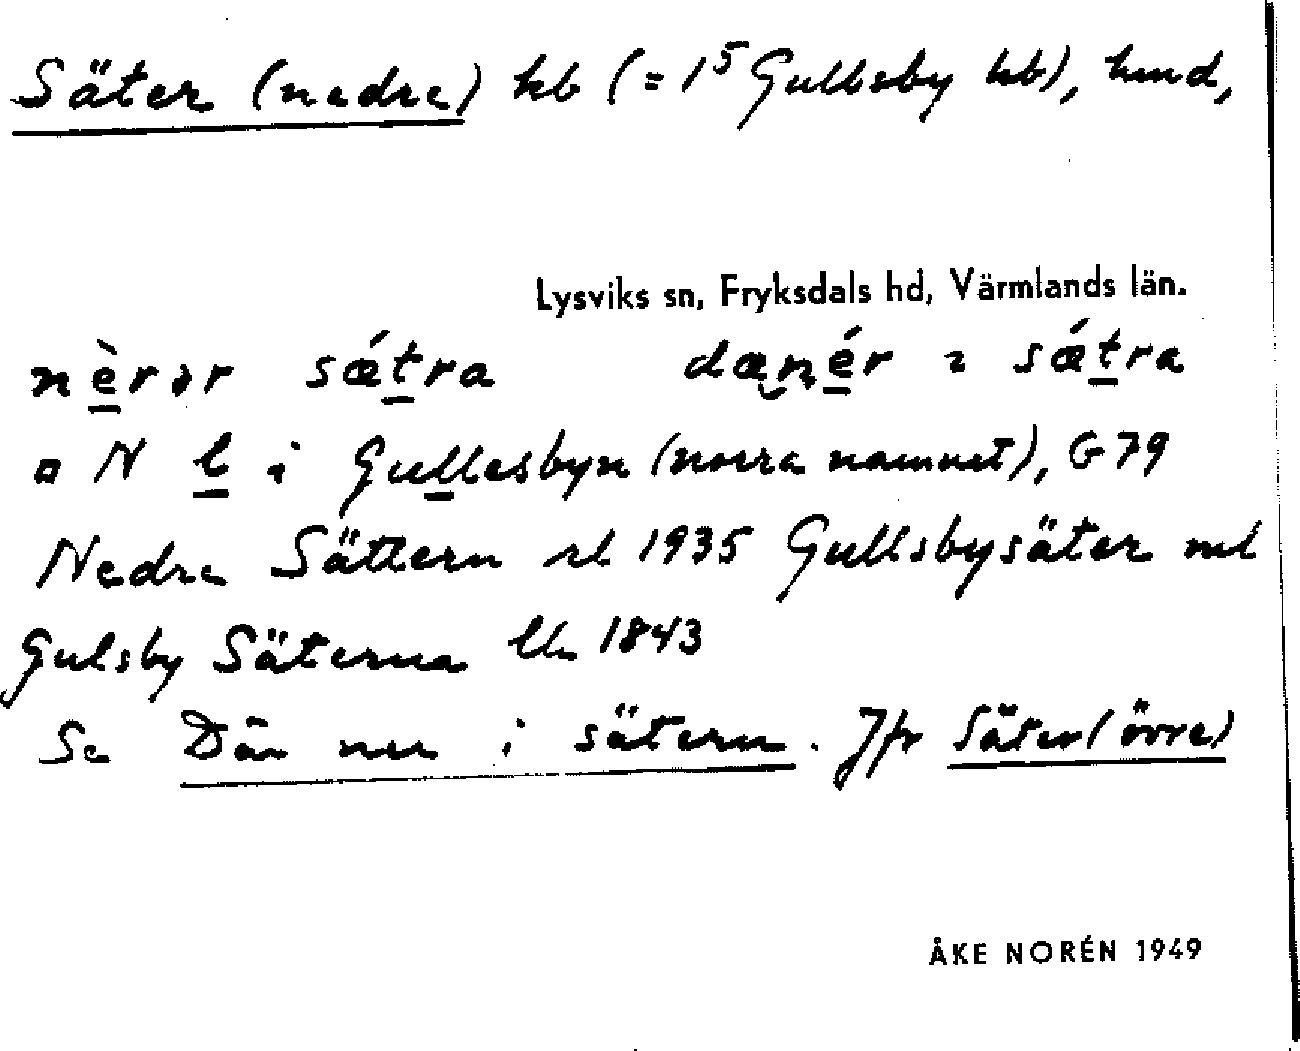 Säter (nedre) hb (= 1⁵ Gullsby hb), hmd,
Lysviks sn, Fryksdals hd, Värmlands län.
nèrər sǽtra dænér ı sǽtra
¤ N l i Gullesbyn (norra namnet), G 79
Nedre Sättern rl 1935 Gullsbysäter ml
Gulsby Säterna Lk 1843
Se Där ner i sätern. Jfr Säter (övre)
ÅKE NORÉN 1949